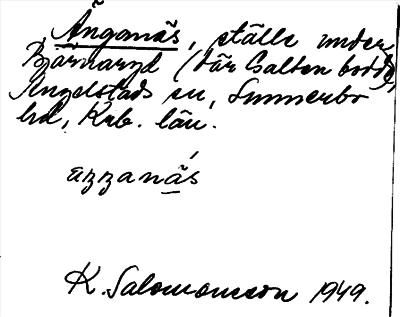 Änganäs, ställe under
Bjärnaryd (där Salten bodde)
Angelstads sn, Sunnerbo
hd, Krb. län.
äŋŋanä́s
K. Salomonsson 1949.